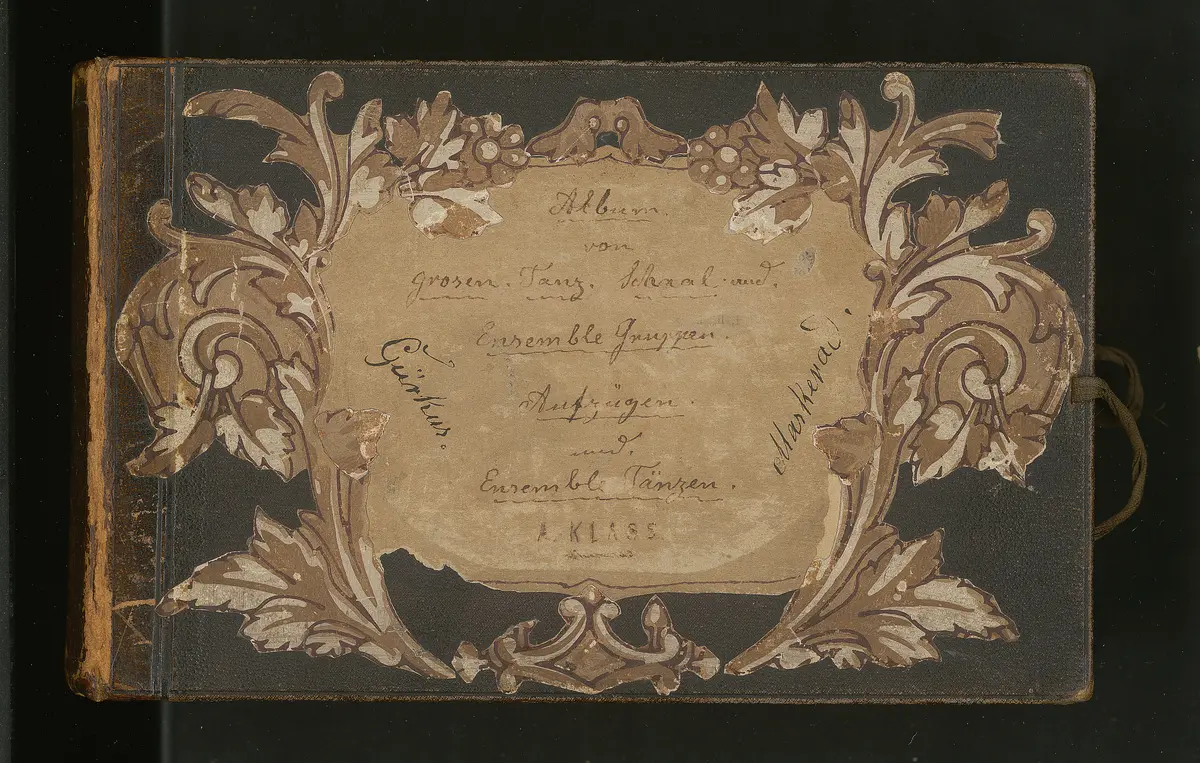 Album.
von
grosen. Tanz. Schaal und.
Ensemble Gruppen.
Aufzügen.
und.
Ensemble Tänzen.
A. KLASS
Maskerad.